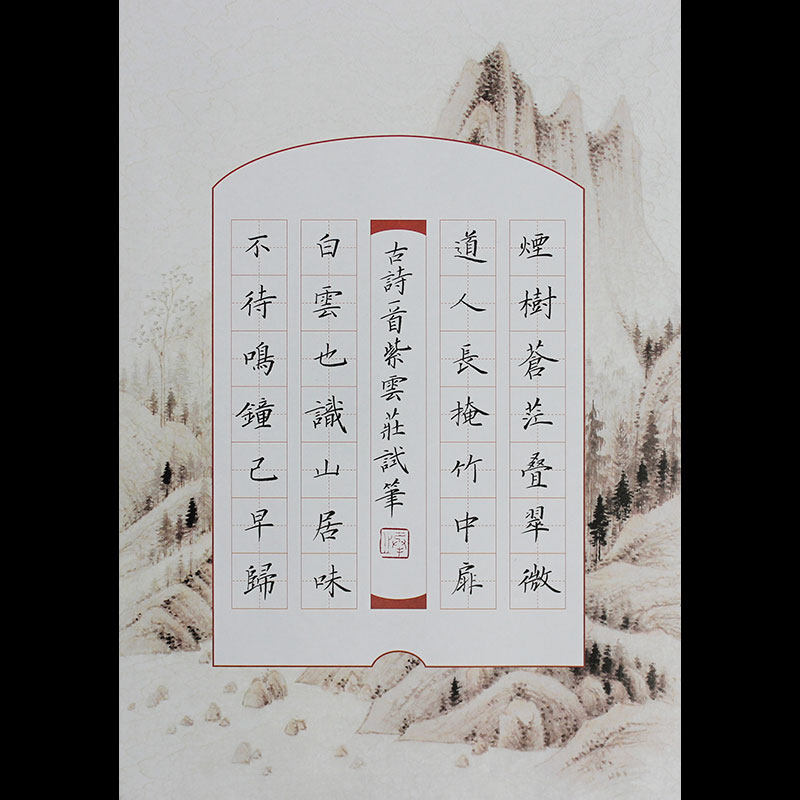 煙樹蒼茫叠翠微
道人長掩竹中扉
古詩一首紫雲莊試筆
白雲也識山居味
不待鳴鐘已早歸